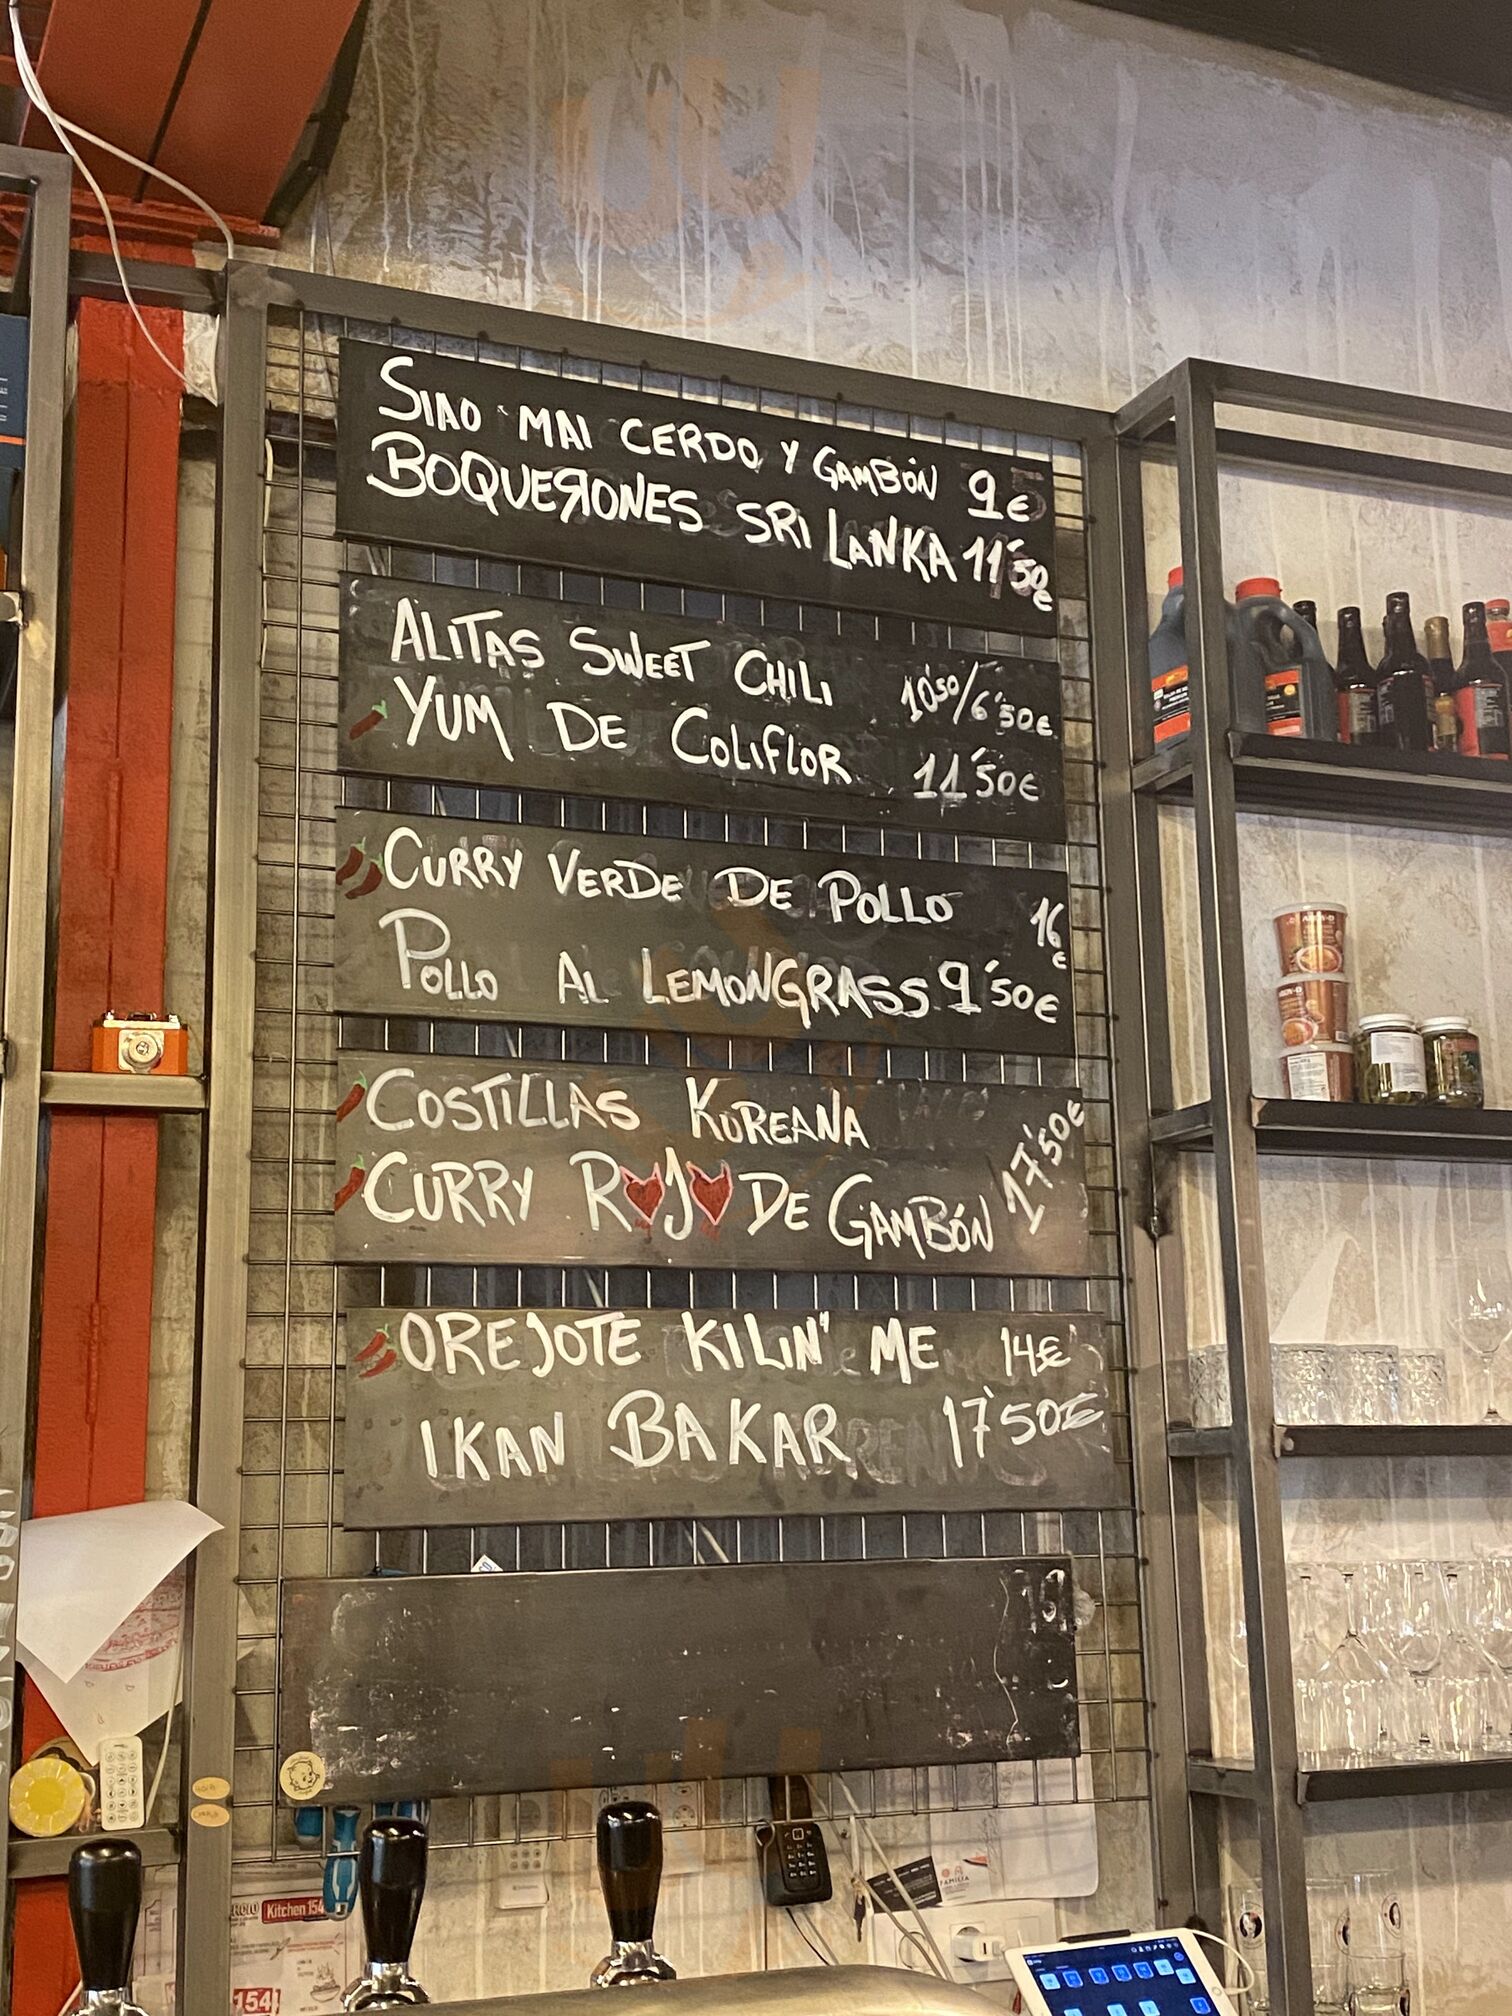 SIAO MAI CERDO Y GAMBÓN 9€
BOQUERONES SRI LANKA 11'50€
ALITAS SWEET CHILI 10'50/6'50€
YUM DE COLIFLOR 11'50€
CURRY VERDE DE POLLO 16€
POLLO AL LEMONGRASS 9'50€
COSTILLAS KOREANA
CURRY ROJO DE GAMBÓN 17'50€
OREJOTE KILIN' ME 14€
IKAN BAKAR 17'50€
Kitchen 154
154
FAMILIA